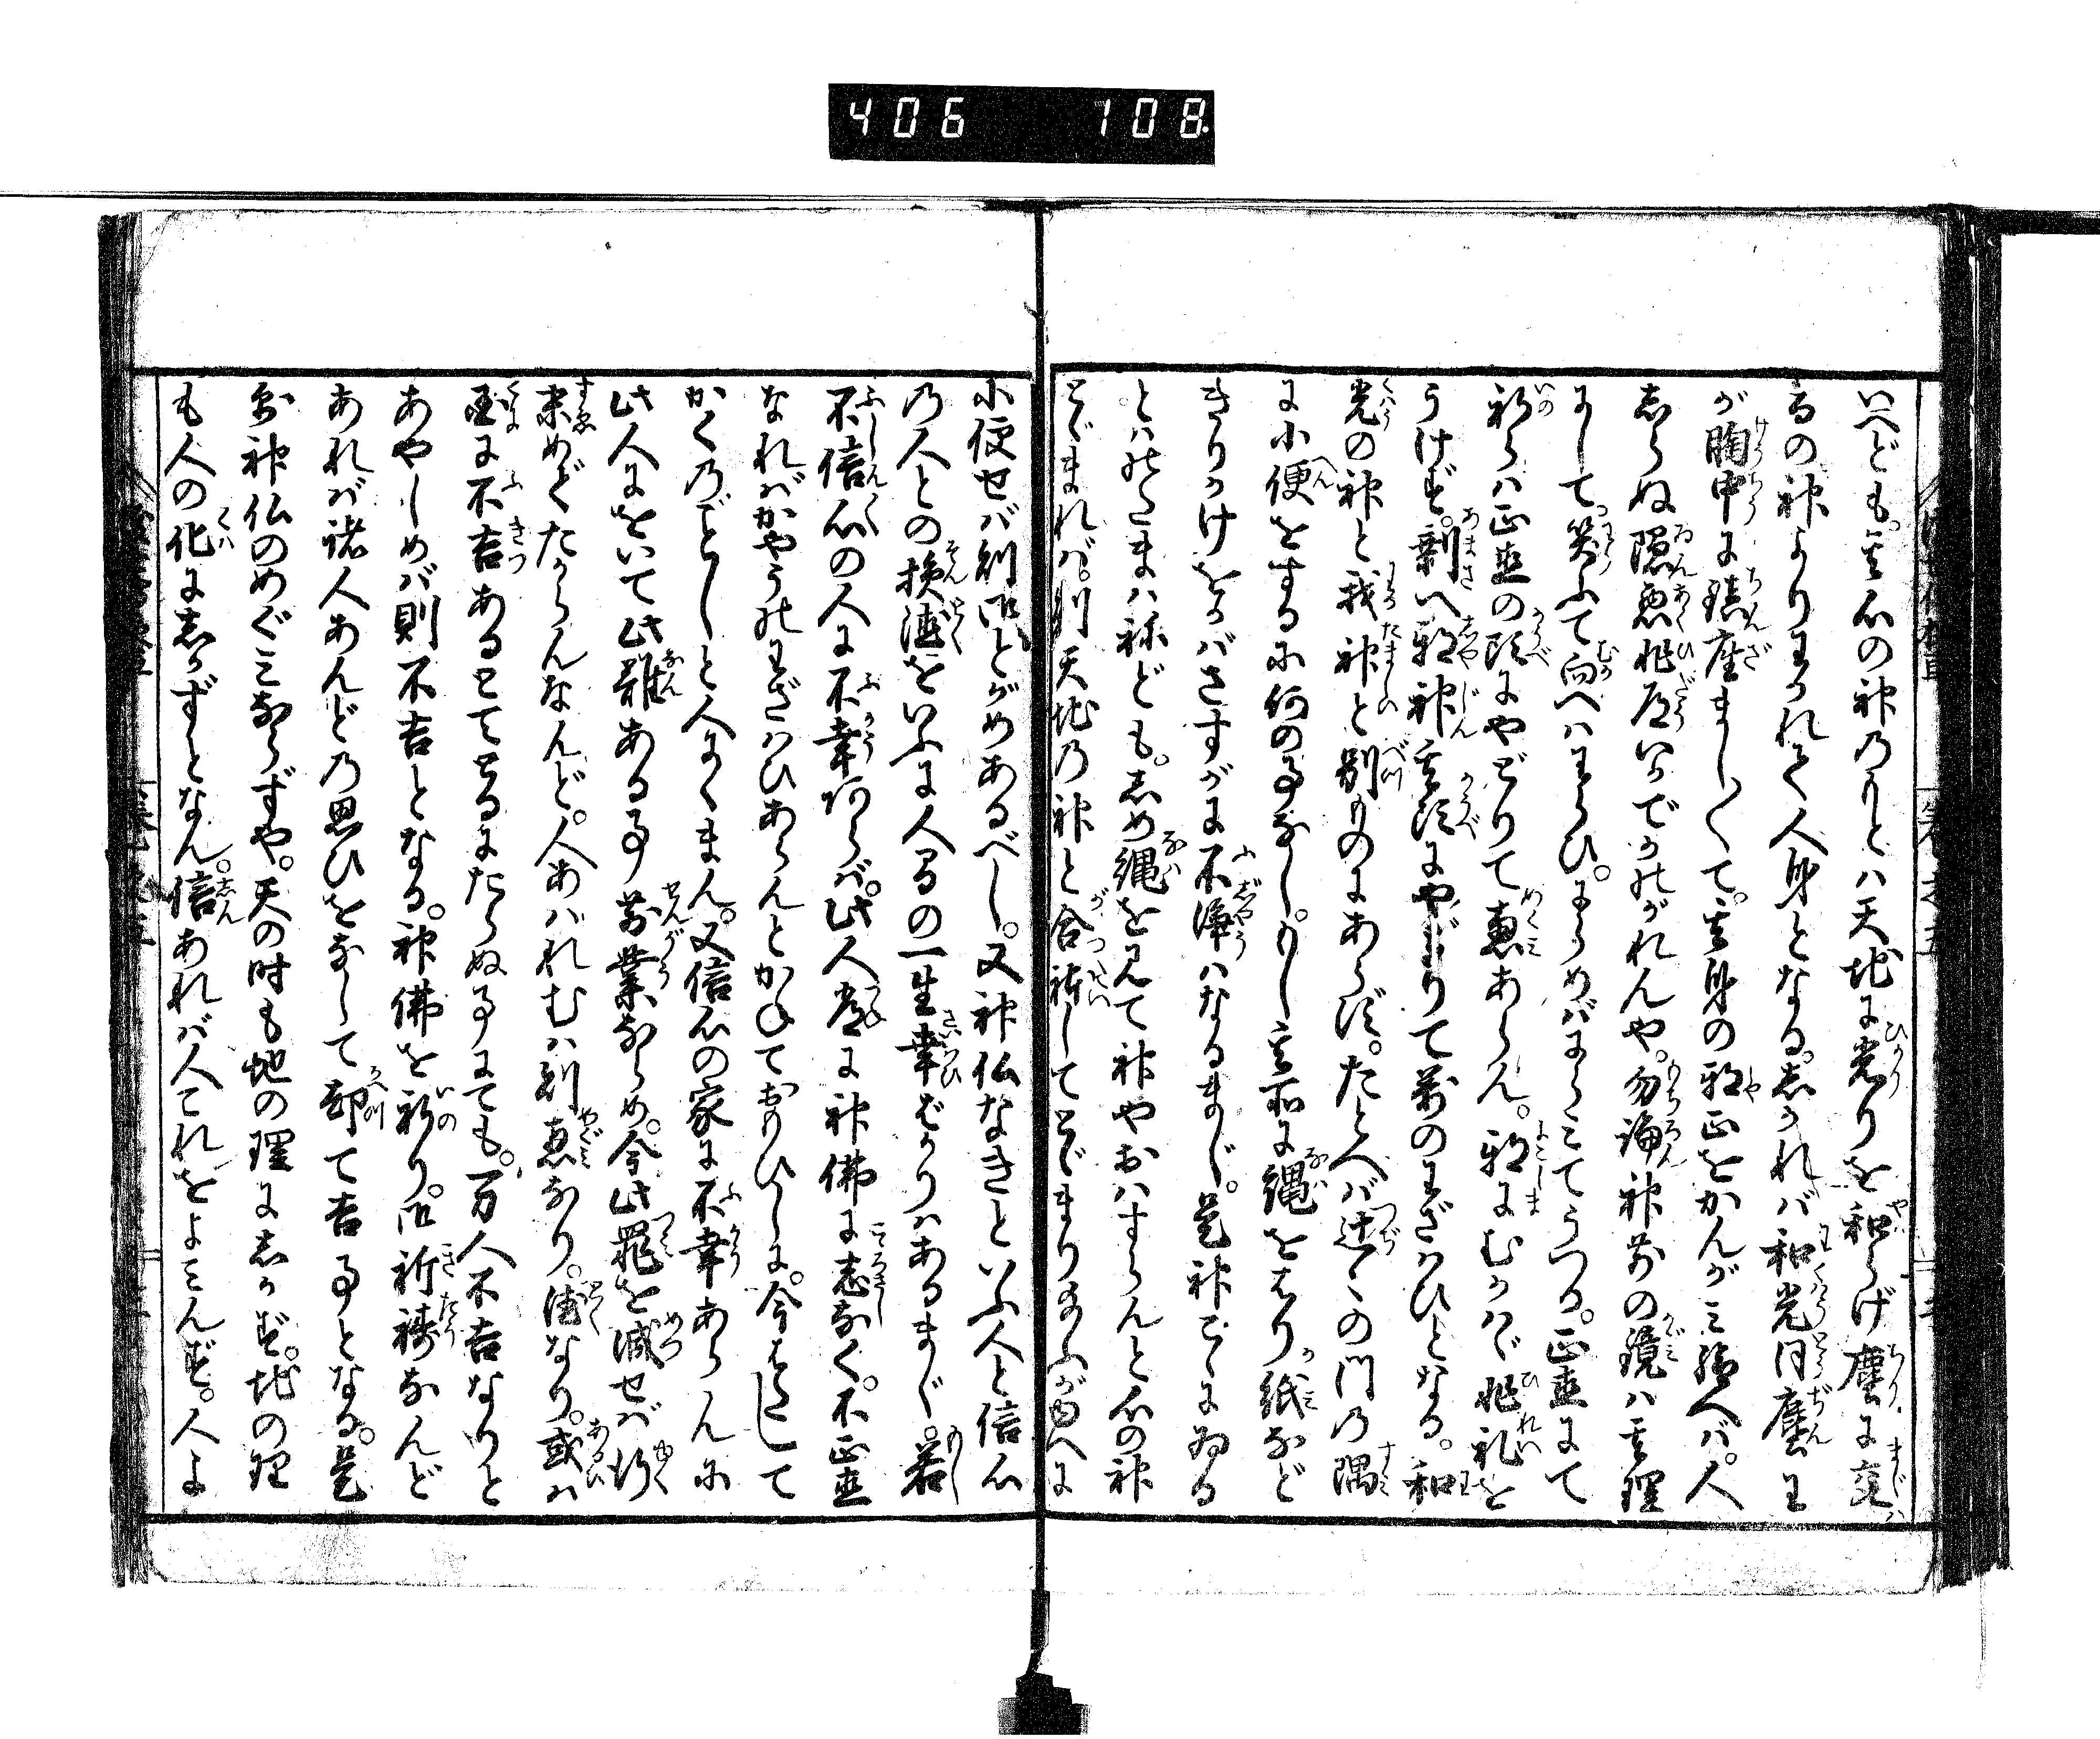 406 108
いへども。其心の神乃もとハ天地に光りを和らげ塵に交
るの神よりわかれて人身となる。しかれバ和光同塵モ
が胸中に鎮座まし〱て。其身の邪正をかんがミ給へバ。人
しらぬ隠悪非道いかでかのがれんや。勿論神前の鏡ハ其理
にして。笑ふて向へハわらひ。にらめバにらミてうつる。正直にて
祈らハ正直の頭にやどりて恵あらん。邪にむかハゞ非礼を
うけず。剰へ邪神其頭にやどりて萬のわざハひとなる。和
光の神と我神と別ものにあらず。たとへバ辻〱の門乃隅
に小便をするに何の事なし。もし其所に縄をはり紙など
きりかけをかバさすがに不浄ハなるまじ。是神こゝにゐる
とハのたまハねども。しめ縄を見て神やおハすらんと心の神
とゞまれバ。則天地乃神と合体してとゞまり給ふが故へに
小便せバ則御とがめあるべし。又神仏なきといふ人と信心
乃人との損徳をいふに人間の一生幸ばかりハあるまじ。若
不信心の人に不幸あらバ。此人常に神佛に志なく。不正直
なれバかやうのわざハひあらんとかねておもひしに。今はたして
かくのごとしと人にくまん。又信心の家に不幸あらんに
此人にをいて此難ある事前業ならめ。今此罪を滅せバ行
末めでたからんなんど。人あハれむハ則恵なり。徳なり。或ハ
国に不吉あるとてとるにたらぬ事にても。万人不吉なりと
あやしめバ則不吉となる。神佛を祈り。御祈祷なんど
あれバ諸人あんどの思ひをなして却て吉事となる。是
則神仏のめぐミならずや。天の時も地の理にしかず。地の理
も人の化にしかずとなん。信あれバ人これをよミんず。人よ